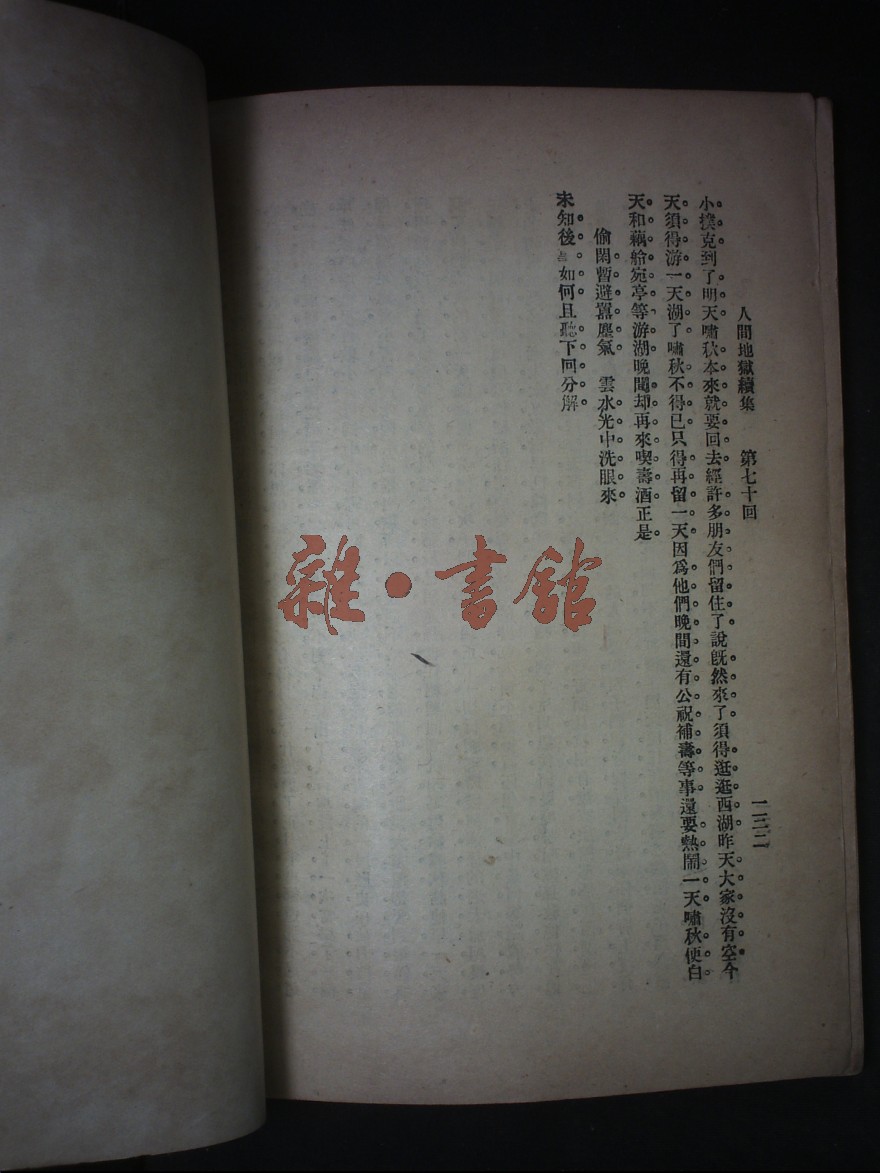 人間地獄續集　第七十回　一二三二
小撲克到了明天嘯秋本來就要回去經許多朋友們留住了說既然來了須得逛逛西湖昨天大家沒有空今
天須得游一天湖了嘯秋不得已只得再留一天因爲他們晚間還有公祝補壽等事還要熱鬧一天嘯秋便白
天和藕舲宛亭等游湖晚間却再來喫壽酒正是
偷閑暫避囂塵氣　雲水光中洗眼來
未知後如何且聽下回分解
雜·書館